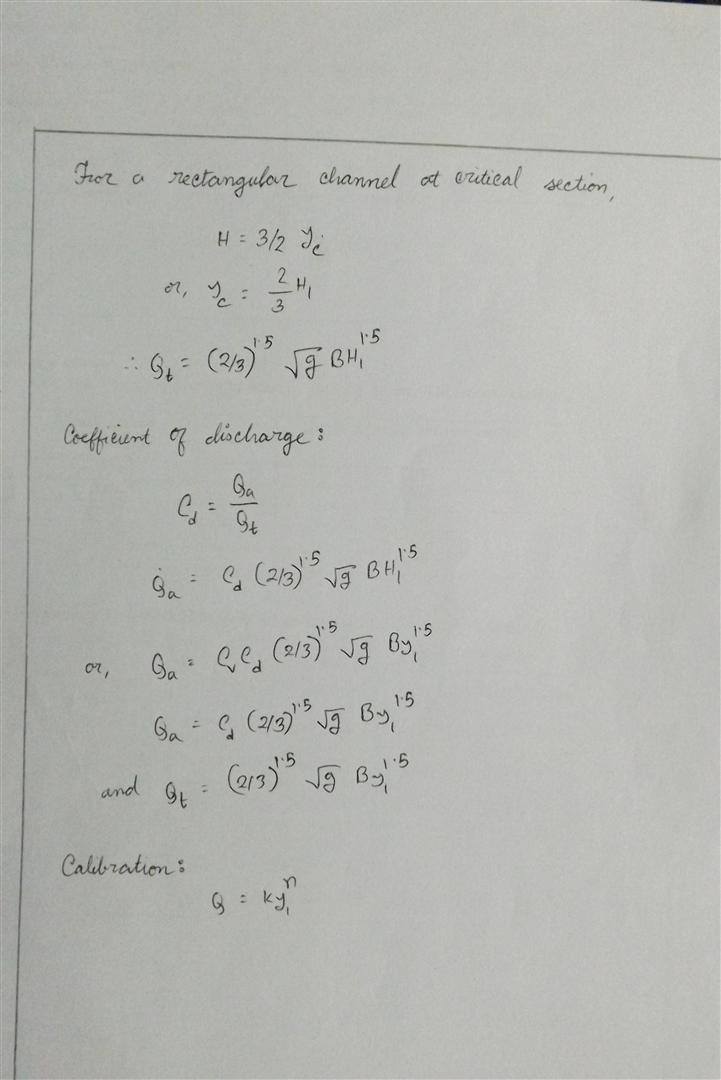 For a rectangular channel at critical section,
H = 3/2 y_c
or, y_c = 2/3 H₁
∴ Q_t = (2/3)^1.5 √g BH₁^1.5
Coefficient of discharge:
C_d = Q_a/Q_t
Q_a = C_d (2/3)^1.5 √g BH₁^1.5
or, Q_a = C_v C_d (2/3)^1.5 √g By₁^1.5
Q_a = C_d (2/3)^1.5 √g By₁^1.5
and Q_t = (2/3)^1.5 √g By₁^1.5
Calibration:
Q = ky₁^n